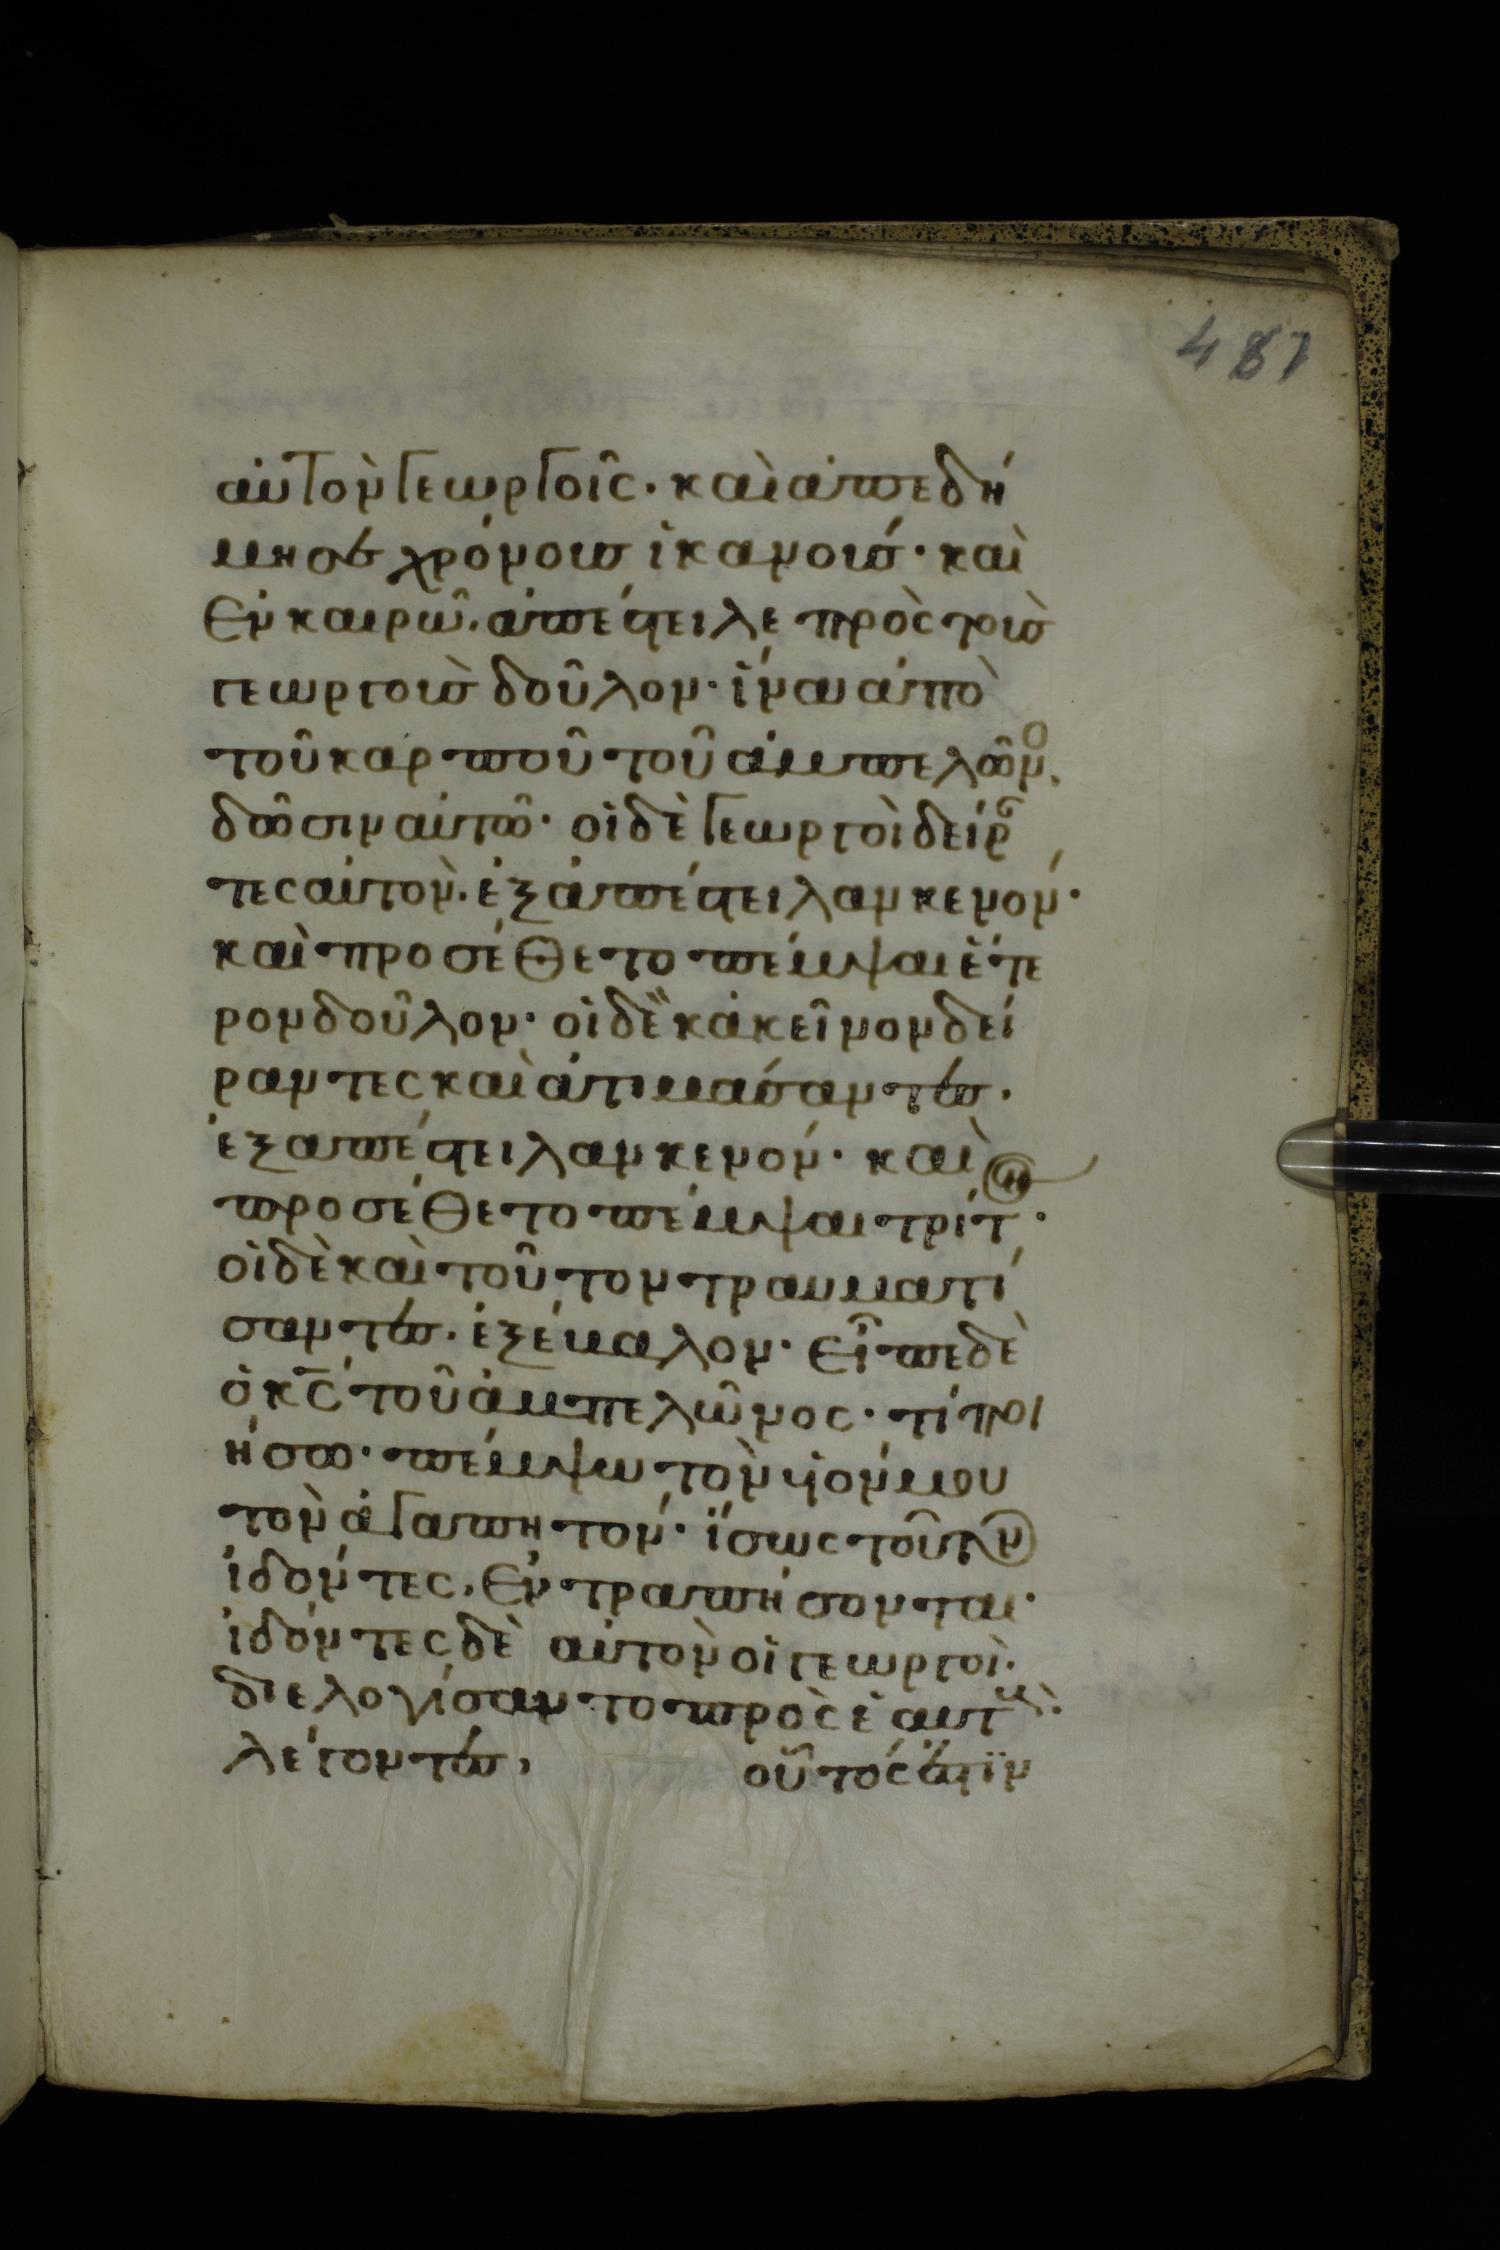 481
αὐτὸν γεωργοῖς· καὶ ἀπεδή
μησε χρόνους ἱκανούς· καὶ
ἐν καιρῶ. ἀπέστειλε πρὸς τοὺς
γεωργοὺς δοῦλον· ἵνα ἀπὸ
τοῦ καρποῦ τοῦ ἀμπελῶνο
δῶσιν αὐτῶ· οἱ δὲ γεωργοὶ δείρ
τες αὐτὸν. ἐξαπέστειλαν κενόν·
καὶ προσέθετο πέμψαι ἕτε
ρον δοῦλον· οἱ δὲ κἀκεῖνον δεί
ραντες καὶ ἀτιμάσαντες.
ἐξαπέστειλαν κενόν· καὶ
προσέθετο πέμψαι τρίτ·
οἱ δὲ καὶ τοῦτον τραυματί
σαντες. ἐξέβαλον· εἶπε δὲ
ὁ κς τοῦ ἀμπελῶνος· τί ποι
ήσω· πέμψω τὸν υἱόν μου
τὸν ἀγαπητόν· ἴσως τοῦτν
ἰδόντες, ἐντραπήσονται·
ἰδόντες δὲ αὐτὸν οἱ γεωργοὶ.
διελογίσαντο πρὸς ἑαυτ·
λέγοντες, οὗτός ἐστϊν